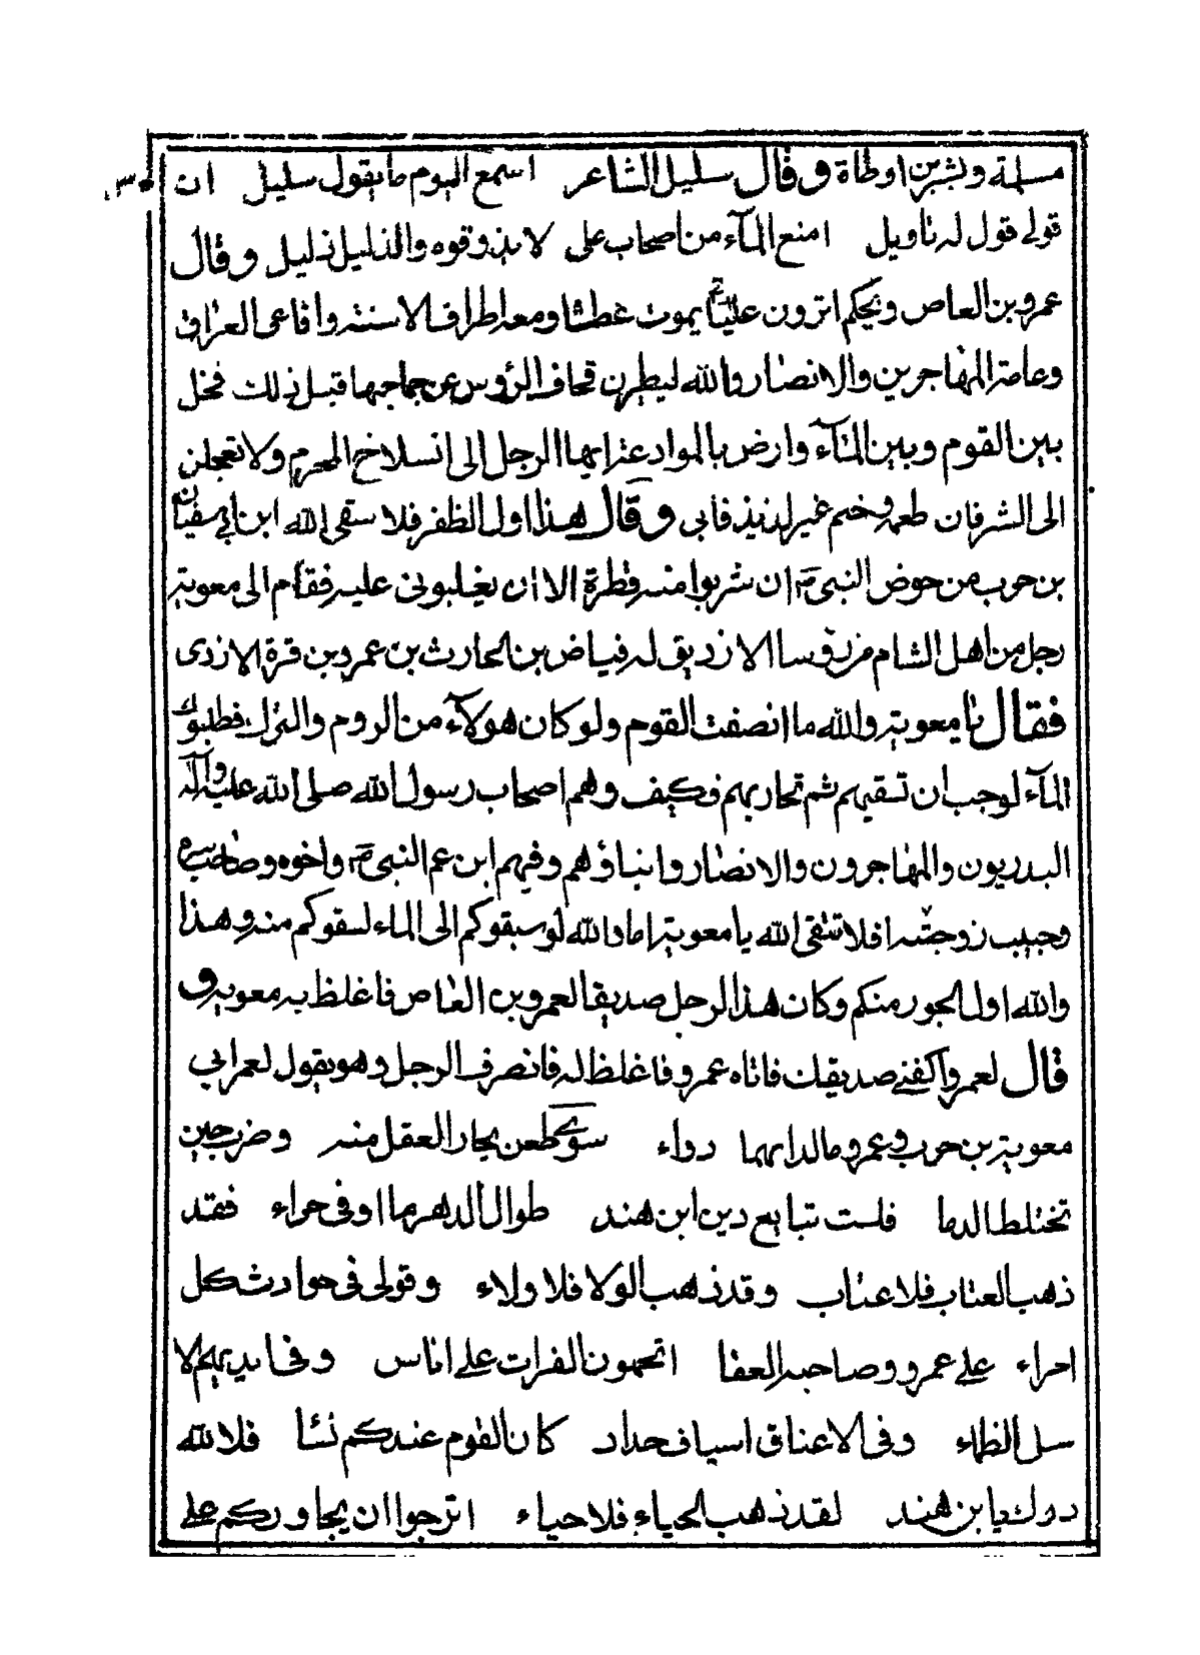 مسلمة وبشر بن اوطاة وقال سليل الشاعر اسمع اليوم ما يقول سليل ان
قولى قول له تاويل امنع المآء من اصحاب على لا يذوقوه والذليل ذليل وقال
عمرو بن العاص ويحكم اترون علياً يموت عطشا ومعه اطراف الاسنة وافاعى العراق
وعامة المهاجرين والانصار والله ليطرن قحاف الرؤس عن جماجمها قبل ذلك فخل
بين القوم وبين المآء وارض بالموادعة ايها الرجل الى انسلاخ المحرم ولا تعجلن
الى الشر فان طعمه وخم غير لذيذ فابى وقال هذا اول الظفر فلا سقى الله ابن ابى سفيان
بن حرب من حوض النبى ص ان شربوا منه قطرة الا ان يغلبونى عليه فقام الى معوية
رجل من اهل الشام من رؤسا الازد يق له فياض بن الحارث بن عمرو بن قرة الازدى
فقال يا معوية والله ما انصفت القوم ولو كان هولآء من الروم والترك فطلبوك
المآء لوجب ان تسقيهم ثم تحاربهم فكيف وهم اصحاب رسول الله صلى الله عليه وآله
البدريون والمهاجرون والانصار وابناؤهم وفيهم ابن عم النبى ص واخوه وصاحب سره
وحبيب زوجته افلا تتقى الله يا معوية اما والله لو سبقوكم الى الماء لسقوكم منه وهذا
والله اول الجور منكم وكان هذا الرجل صديقا لعمرو بن العاص فاغلظ به معوية و
قال لعمرو اكفنى صديقك فاتاه عمرو فاغلظ له فانصرف الرجل وهو يقول لعمر ابى
معوية بن حرب وعمرو ما لدائهما دواء سوى طعن يحار العقل منه وضرب حين
تختلط الدما فلست تبايع دين ابن هند طوال الدهر ما اوفى حراء فقد
ذهب العتاب فلا عتاب وقد ذهب الولا فلا ولاء وقولى فى حوادث كل
احراء على عمرو وصاحبه العفا اتحمون الفرات على اناس وفى ايديهم الا
سل الظماء وفى الاعناق اسياف حداد كان القوم عندكم نسا فلا لله
دوك يا بن هند لقد ذهب الحياء فلا حياء اترجوا ان يجاوركم على